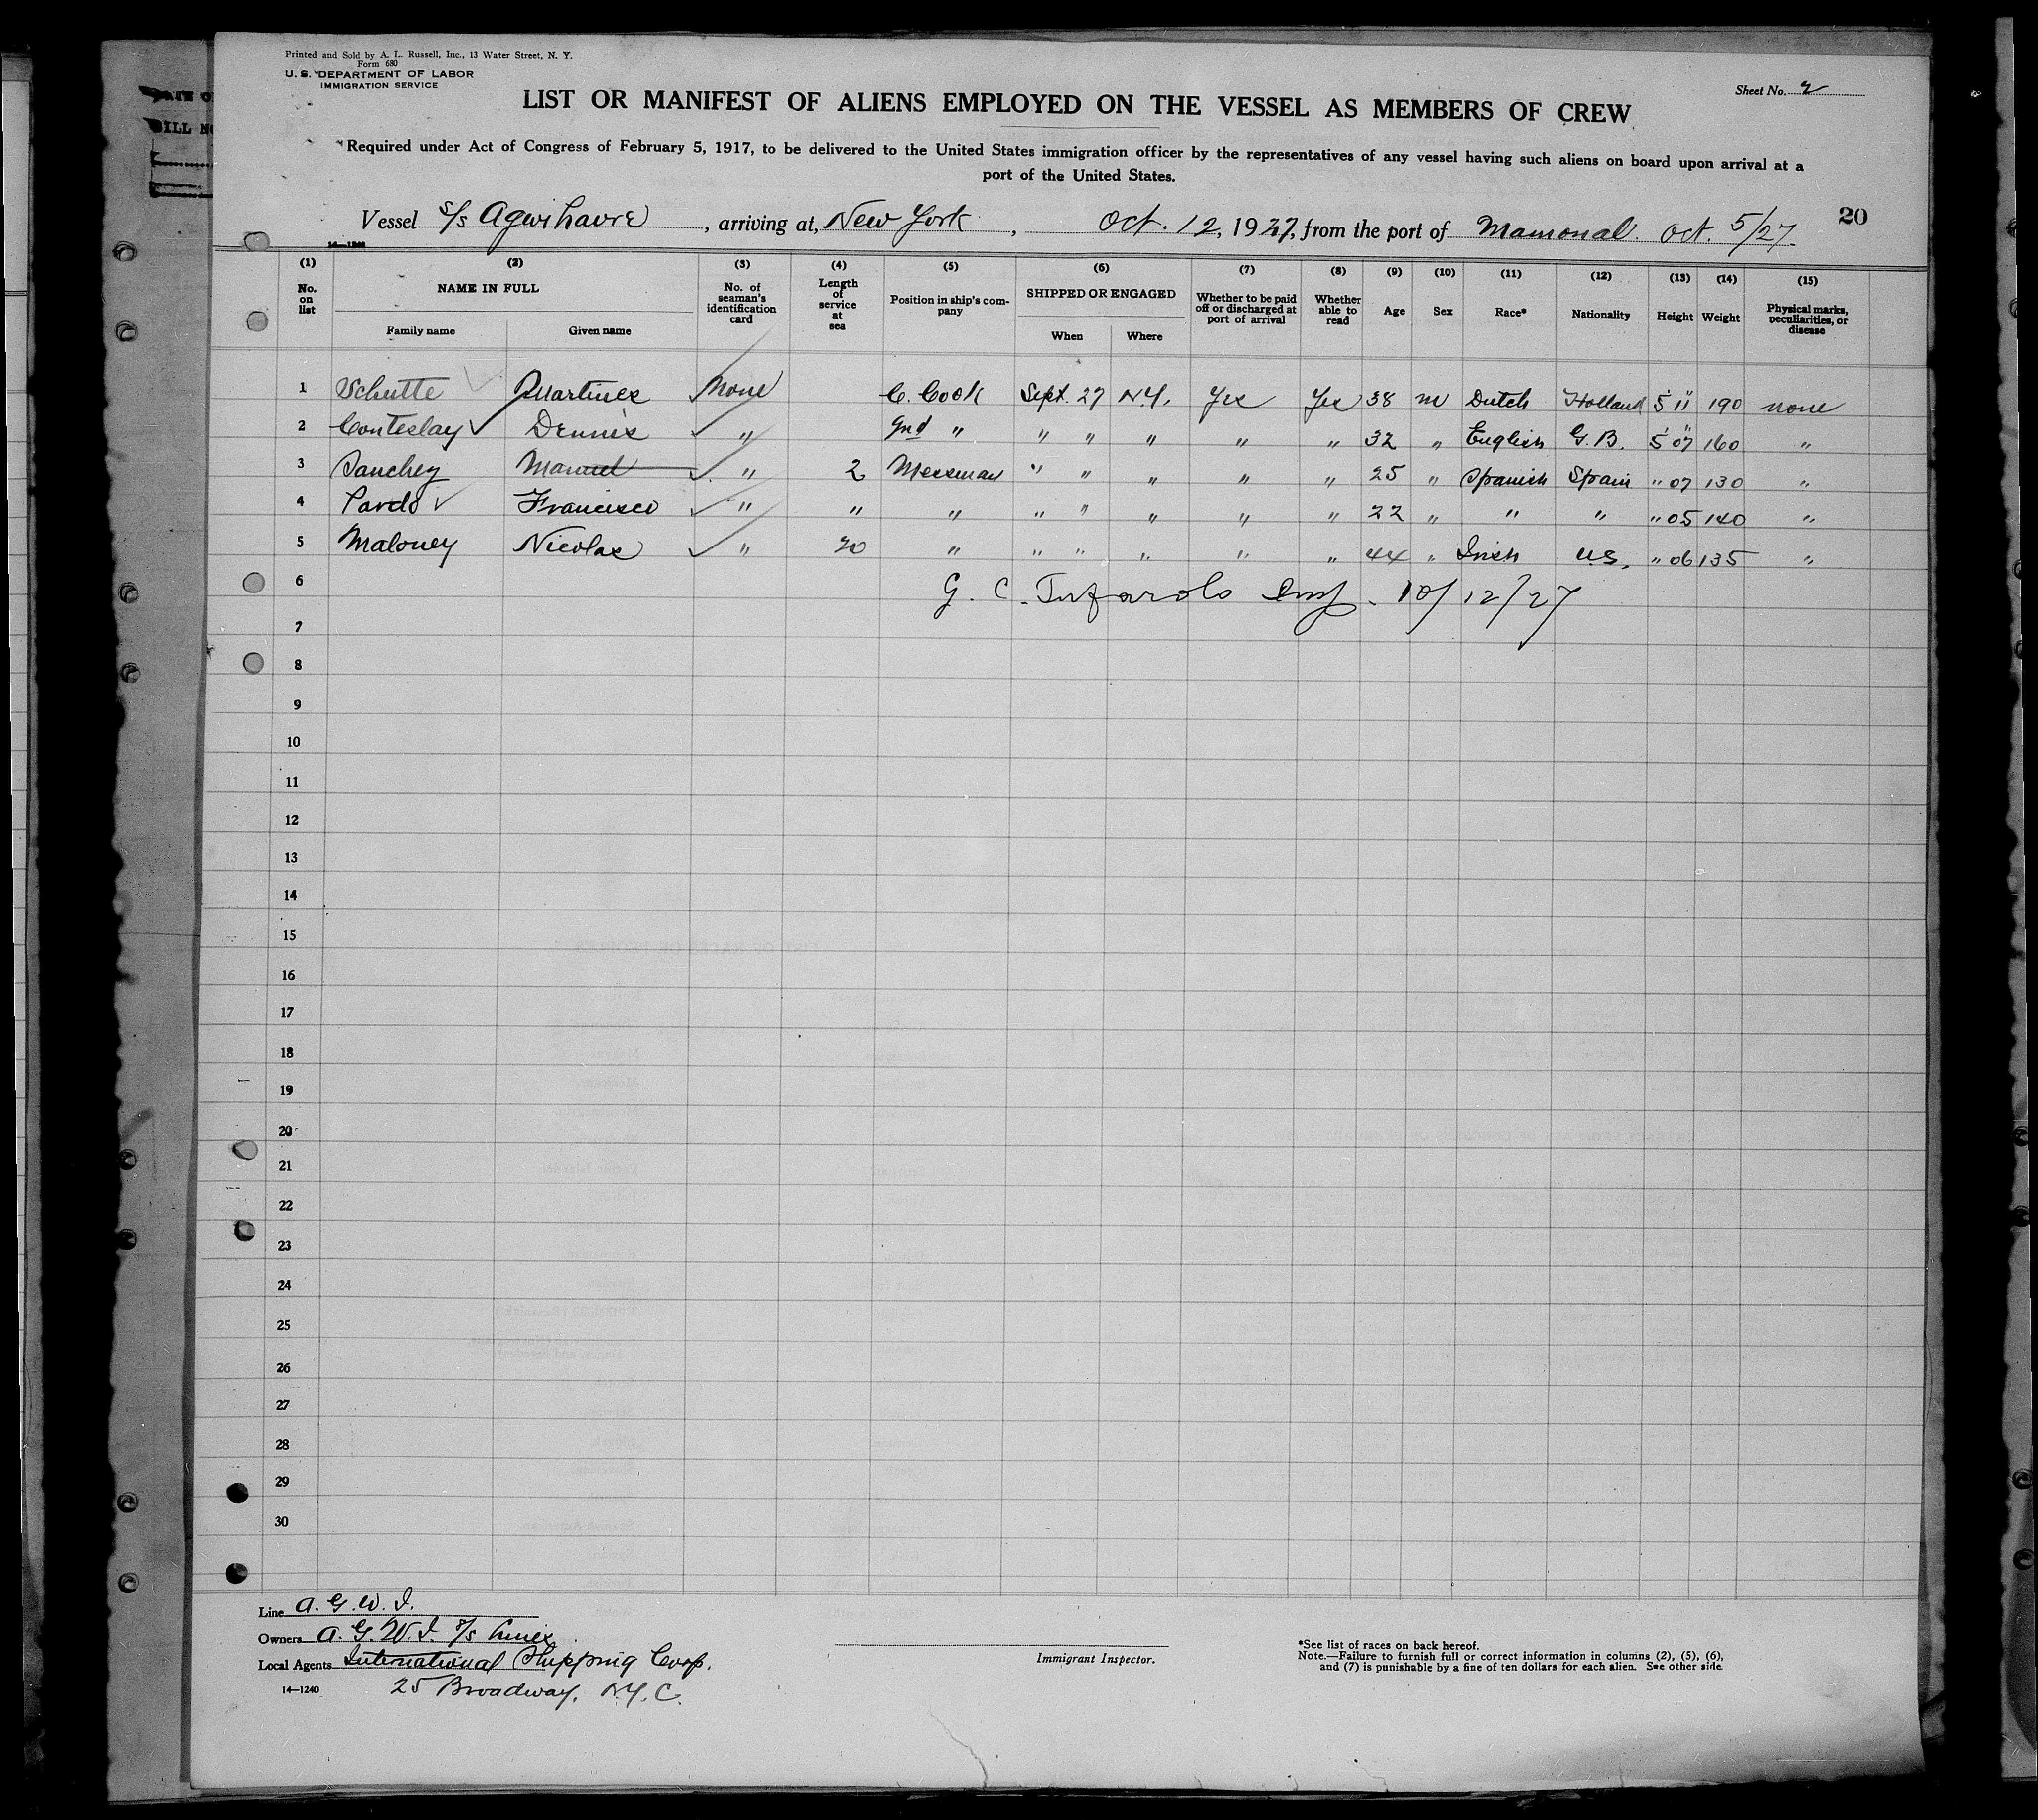 Printed and Sold by A. L. Russell, Inc., 13 Water Street, N. Y.
Form 680
U. S. DEPARTMENT OF LABOR
IMMIGRATION SERVICE
Sheet No. 2
LIST OR MANIFEST OF ALIENS EMPLOYED ON THE VESSEL AS MEMBERS OF CREW
Required under Act of Congress of February 5, 1917, to be delivered to the United States immigration officer by the representatives of any vessel having such aliens on board upon arrival at a
port of the United States.
Vessel S/s Agwihavre, arriving at, New York, Oct. 12, 1927, from the port of Mamonal Oct. 5/27. 20
(1) (2) (3) (4) (5) (6) (7) (8) (9) (10) (11) (12) (13) (14) (15)
No. on list NAME IN FULL Family name Given name No. of seaman's identification card Length of service at sea Position in ship's company SHIPPED OR ENGAGED When Where Whether to be paid off or discharged at port of arrival Whether able to read Age Sex Race* Nationality Height Weight Physical marks, peculiarities, or disease
1 Schutte Martines None C. Cook Sept. 27 N.Y. Yes Yes 38 m Dutch Holland 5' 11" 190 none
2 Conteslay Dennis " 2nd " " " " " " 32 " English G.B. 5' 07" 160 "
3 Sanchez Manuel " 2 Messman " " " " " 25 " Spanish Spain " 07 130 "
4 Pardo Francisco " " " " " " " " 22 " " " " 05 140 "
5 Maloney Nicolas " 20 " " " " " " 44 " Irish U.S. " 06 135 "
6 G. C. Insp. 10/12/27
7
8
9
10
11
12
13
14
15
16
17
18
19
20
21
22
23
24
25
26
27
28
29
30
Line A. G. W. I.
Owners A. G. W. I. S/s Lines
Local Agents International Shipping Corp.
25 Broadway, N.Y.C.
14—1240
Immigrant Inspector.
*See list of races on back hereof.
Note.—Failure to furnish full or correct information in columns (2), (5), (6),
and (7) is punishable by a fine of ten dollars for each alien. See other side.